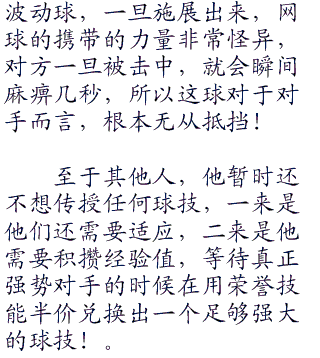 波动球，一旦施展出来，网
球的携带的力量非常怪异，
对方一旦被击中，就会瞬间
麻痹几秒，所以这球对于对
手而言，根本无从抵挡！
至于其他人，他暂时还
不想传授任何球技，一来是
他们还需要适应，二来是他
需要积攒经验值，等待真正
强势对手的时候在用荣誉技
能半价兑换出一个足够强大
的球技！。